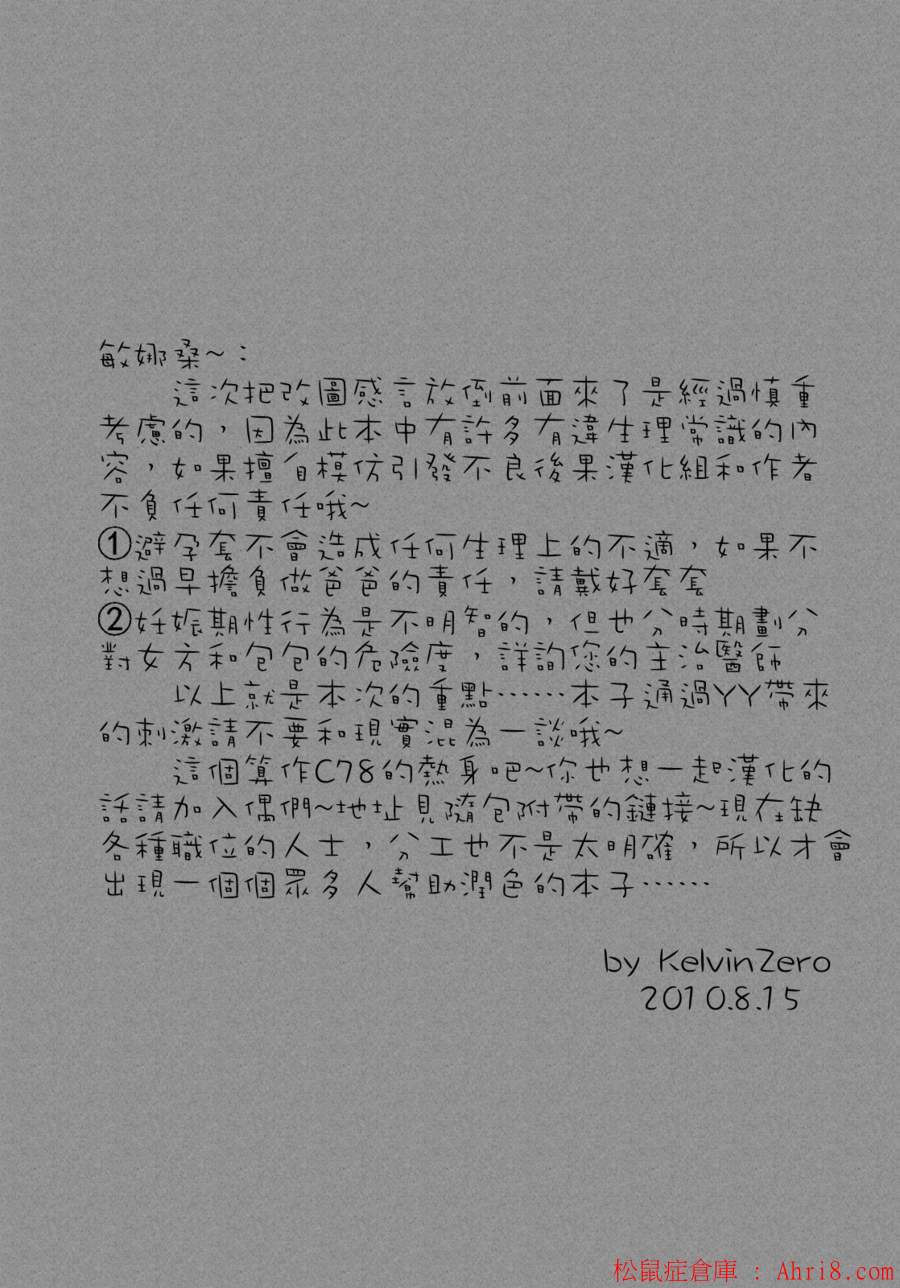 敏娜桑~：
這次把改圖感言放倒前面來了是經過慎重
考慮的，因為此本中有許多有違生理常識的內
容，如果擅自模仿引發不良後果漢化組和作者
不負任何責任哦~
①避孕套不會造成任何生理上的不適，如果不
想過早擔負做爸爸的責任，請戴好套套
②妊娠期性行為是不明智的，但也分時期劃分
對女方和包包的危險度，詳詢您的主治醫師
以上就是本次的重點……本子通過YY帶來
的刺激請不要和現實混為一談哦~
這個算作C78的熱身吧~你也想一起漢化的
話請加入偶們~地址見隨包附帶的鏈接~現在缺
各種職位的人士，分工也不是太明確，所以才會
出現一個個眾多人幫助潤色的本子……
by KelvinZero
2010.8.15
松鼠症倉庫 : Ahri8.com